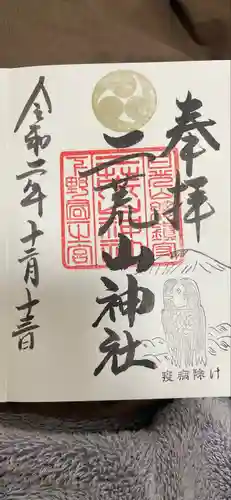 奉拝
二荒山神社
令和二年十二月十三日
疫病除け